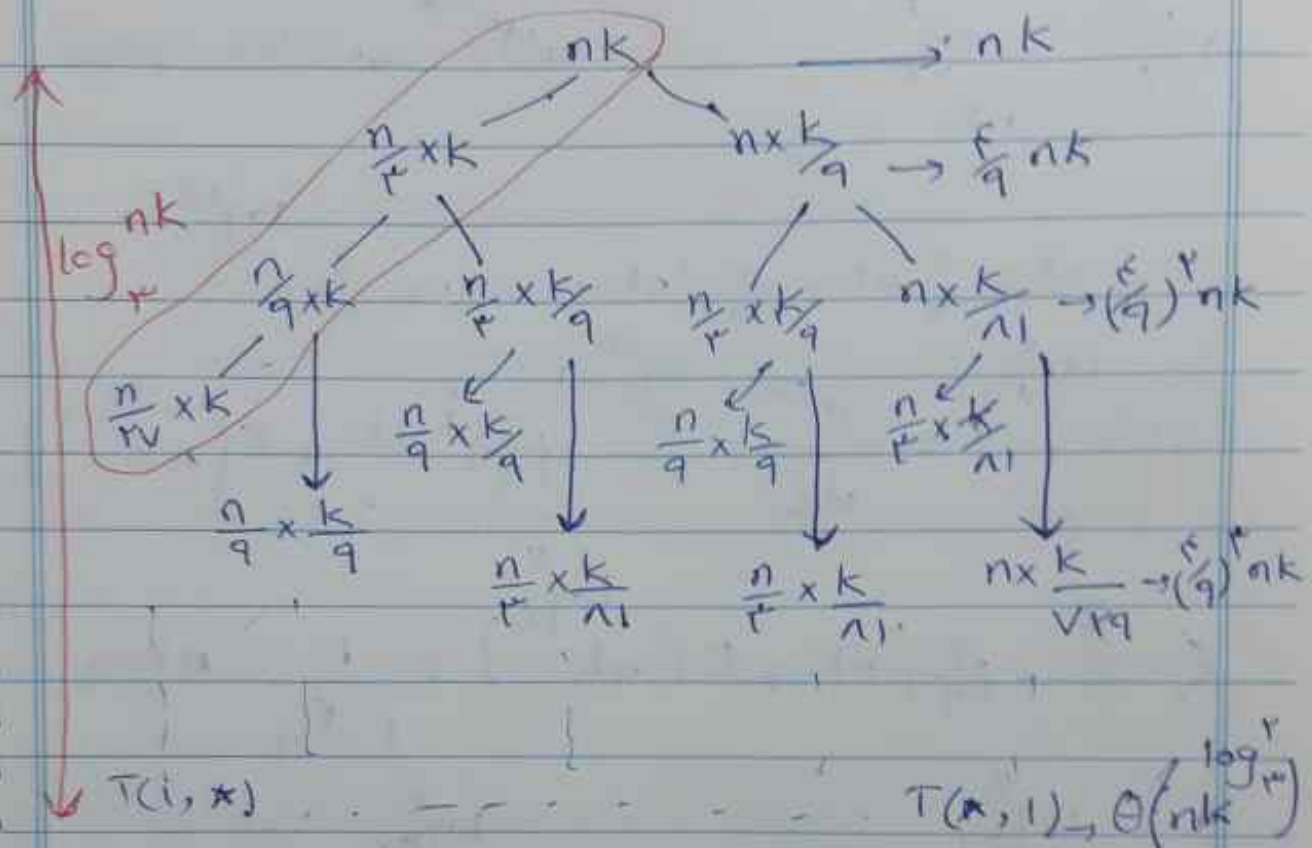 nk → nk
n/۳ × k n × k/۹ → ۴/۹ nk
log₃ nk
n/۹ × k n/۳ × k/۹ n/۳ × k/۹ n × k/۸۱ → (۴/۹)^۲ nk
n/۲۷ × k n/۹ × k/۹ n/۹ × k/۹ n/۳ × k/۸۱
n/۹ × k/۹ n/۳ × k/۸۱ n/۳ × k/۸۱ n × k/۷۲۹ → (۴/۹)^۳ nk
T(1, *) . . - - - - - . T(*, 1) → θ(nk^log₃ ۲)